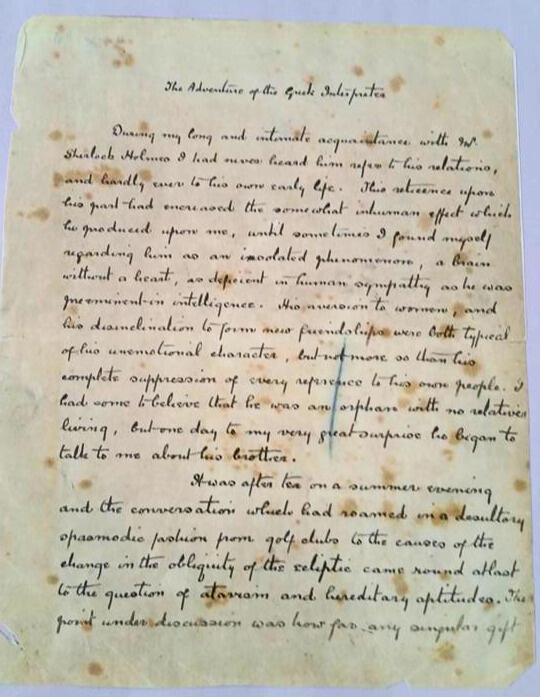 The Adventure of the Greek Interpreter
During my long and intimate acquaintance with Mr
Sherlock Holmes I had never heard him refer to his relations,
and hardly ever to his own early life. This reticence upon
his part had encreased the somewhat inhuman effect which
he produced upon me, until sometimes I found myself
regarding him as an isolated phenomenon, a brain
without a heart, as deficient in human sympathy as he was
preeminent in intelligence. His aversion to women, and
his disinclination to form new friendships were both typical
of his unemotional character, but not more so than his
complete suppression of every reference to his own people. I
had come to believe that he was an orphan with no relatives
living, but one day to my very great surprise he began to
talk to me about his brother.
It was after tea on a summer evening
and the conversation which had roamed in a desultory
spasmodic fashion from golf clubs to the causes of the
change in the obliquity of the ecliptic came round at last
to the question of atavism and hereditary aptitudes. The
point under discussion was how far any singular gift